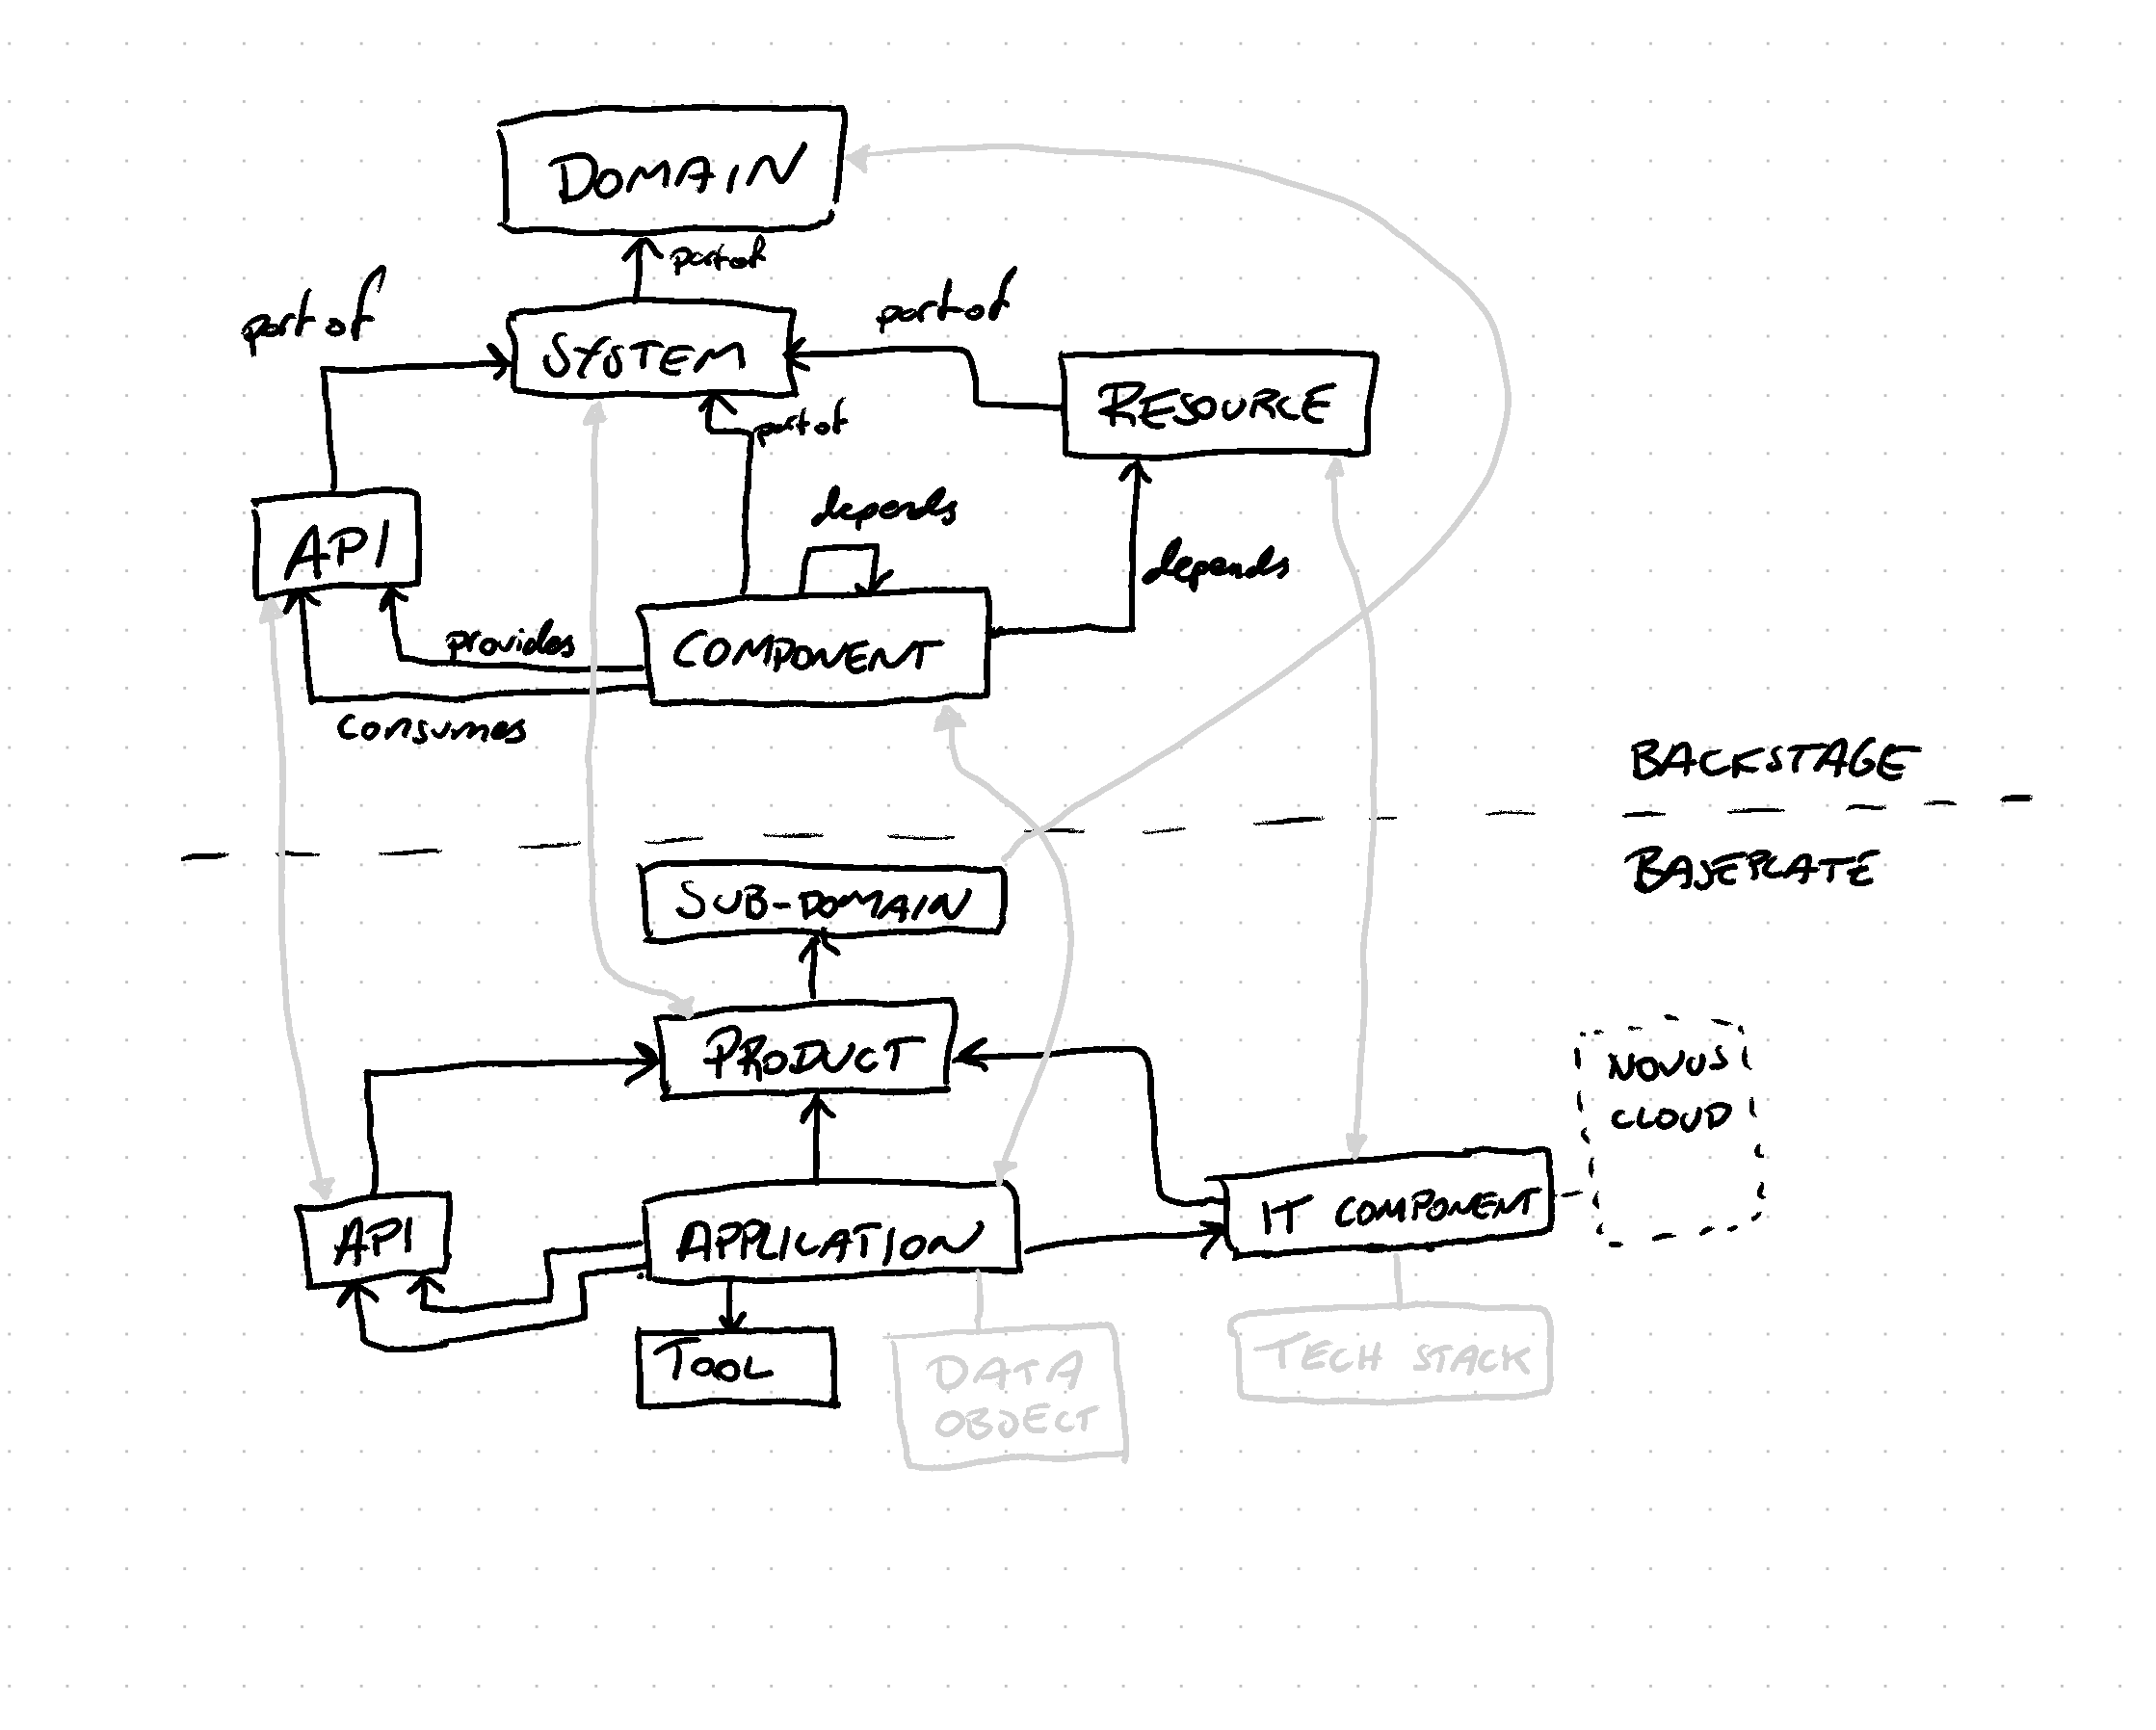 DOMAIN
part of
part of
part of
SYSTEM
RESOURCE
part of
depends
API
depends
provides
COMPONENT
Consumes
BACKSTAGE
BASEPLATE
SUB-DOMAIN
PRODUCT
NOVUS
CLOUD
API
APPLICATION
IT COMPONENT
TOOL
DATA
OBJECT
TECH STACK